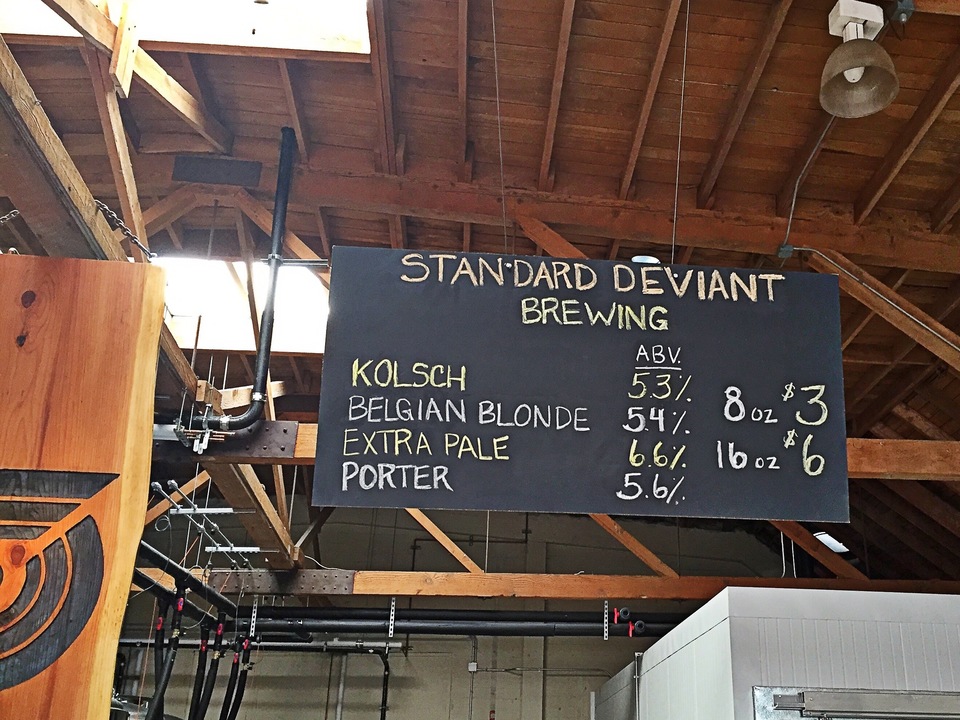 STANDARD DEVIANT
BREWING
ABV.
KOLSCH 5.3%
BELGIAN BLONDE 5.4%
EXTRA PALE 6.6%
PORTER 5.6%
8 oz $3
16 oz $6